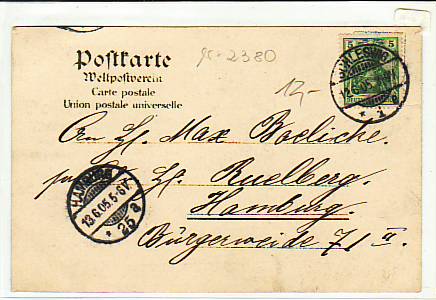 Postkarte
Weltpostverein
Carte postale
Union postale universelle
2380
12,-
5 5
An H. Max
H. Ruelberg.
Hamburg.
Bürgerweide 71 II.
HAMBURG
13.6.05.5-6V.
* 25 a